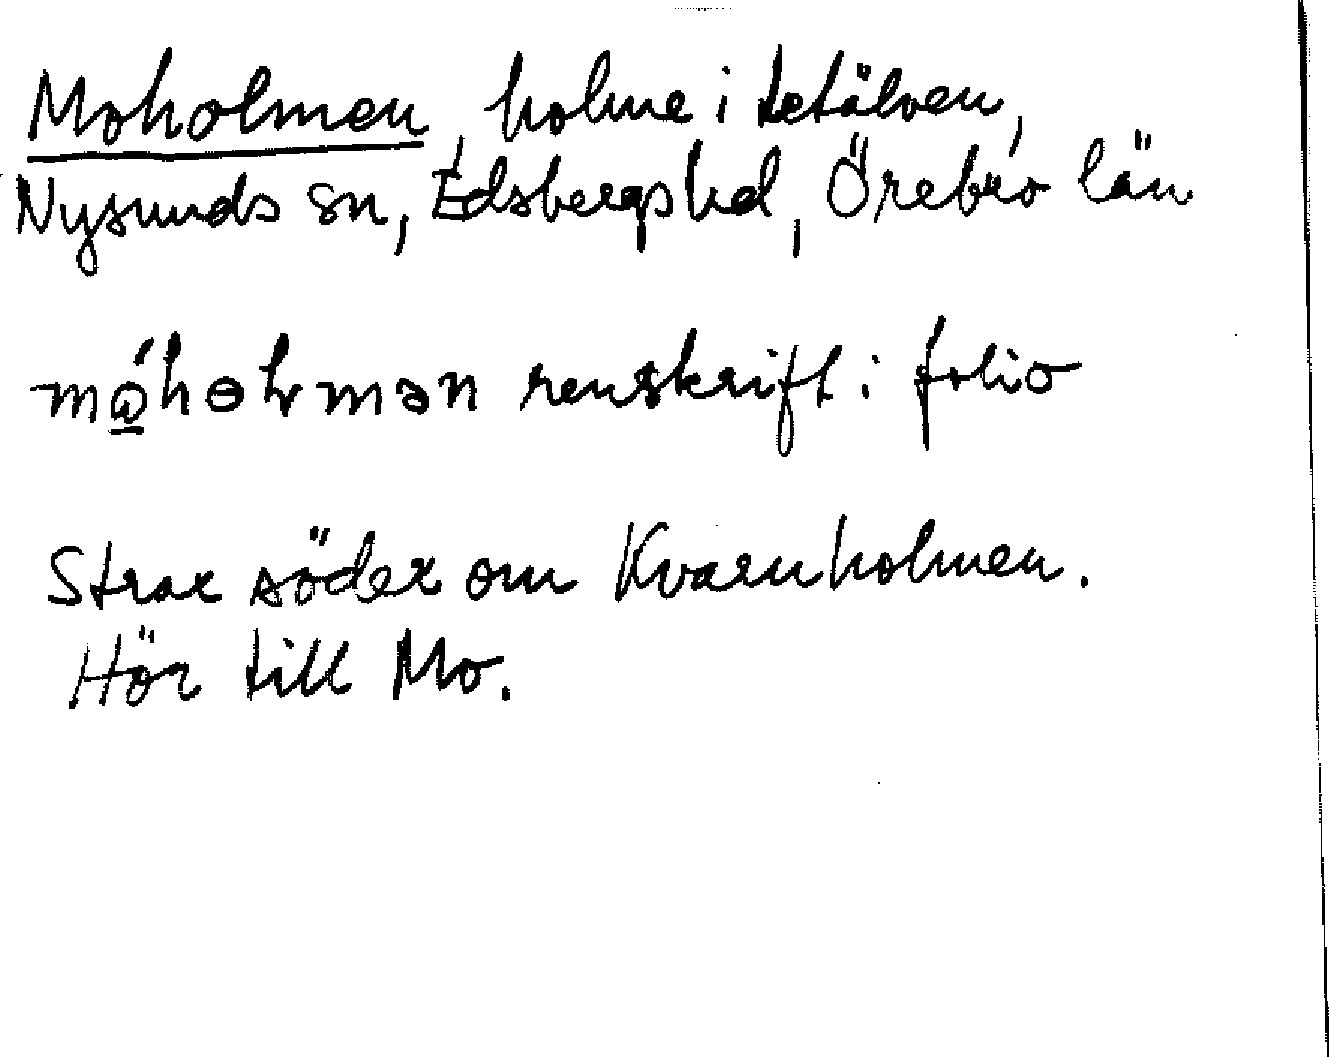 Moholmen, holme i Letälven,
Nysunds sn, Edsbergs hd, Örebro län
renskrift i folio
Strax söder om Kvarnholmen.
Hör till Mo.